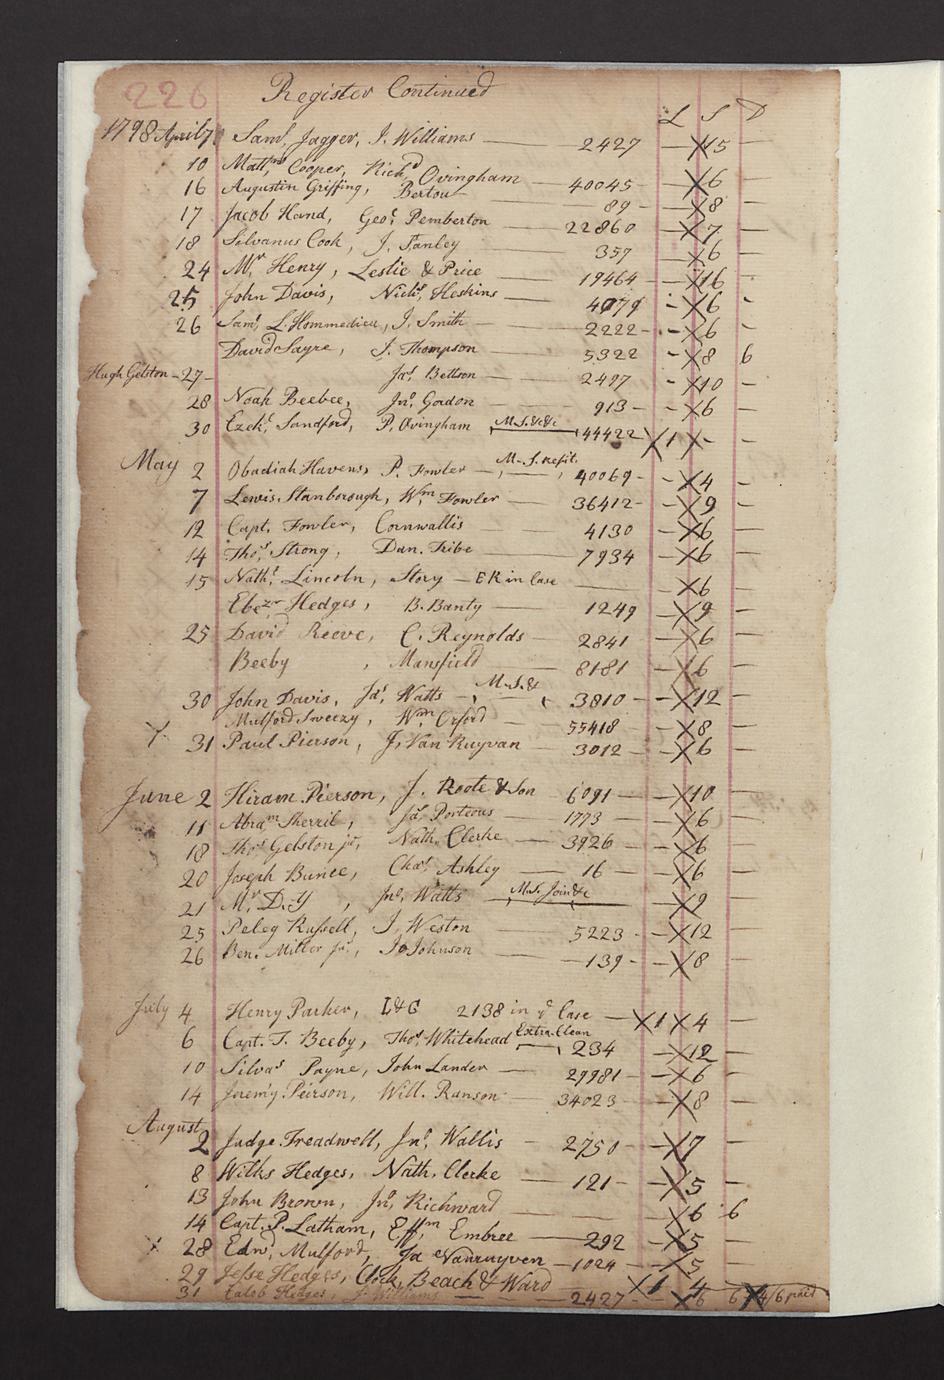 226 Register Continued
L S D
1798 April 7 Saml. Jagger, J. Williams — 2427 — X 15
10 Matthw Cooper, Richd Ovingham — 40045 — X 6 —
16 Augustin Griffing, Berton — 89 — X 8 —
17 Jacob Hand, Geoe. Pemberton — 22860 — X 7 —
18 Silvanus Cook, J. Tanley — 357 X 6 —
24 Mr. Henry, Leslie & Price — 19464 — X 16 —
25 John Davis, Nichs. Heskins — 4079 — X 6 —
26 Saml. L. Hommedieu, J. Smith — 2222 — X 6 —
David Sayre, J. Thompson — 5322 — X 8 6
Hugh Gelston — 27 — Jas. Bettson — 2497 — X 10 —
28 Noah Beebee, Jno. Gordon — 913 — X 6 —
30 Ezekl. Sandford, P. Ovingham M.S. &c &c 44422 X 1 X — —
May 2 Obadiah Havens, P. Fowler — M.S. refit. 40069 — X 4 —
7 Lewis. Stanborough, Wm Fowler — 36412 — X 9 —
12 Capt. Fowler, Cornwallis — 4130 — X 6 —
14 Thos. Strong, Dan. Tribe — 7934 — X 6 —
15 Nathl. Lincoln, Story — ER in Case — X 6
Ebezr Hedges, B. Banty — 1249 — X 9 —
25 David Reeve, C. Reynolds — 2841 — X 6 —
Beeby , Mansfield — 8181 X 6 —
30 John Davis, Jas. Watts — M.S. & 3810 — X 12 —
Mulford Sweezy, Wm Orford — 55418 — X 8 —
X 31 Paul Pierson, J. Van Ruyvan — 3012 — X 6 —
June 2 Hiram Pierson, J. Roote & Son — 6091 — X 10 —
11 Abram Sherril, Jas. Porteous — 1773 — X 6 —
18 Thos. Gelston jr., Nath. Clerke — 3926 — X 6 —
20 Joseph Bunce, Chas. Ashley — 16 — X 6 —
21 Mr D.Y , Jno. Watts — M.S. Join &c — X 9 —
25 Peleg Russell, J. Weston — 5223 — X 12 —
26 Ben. Miller jr., Jo Johnson — 139 — X 8 —
July 4 Henry Parker, L&G 2138 in ye Case — X 1 X 4 —
6 Capt. T. Beeby, Thos. Whitehead Extra. Clean 234 — X 12 —
10 Silvas Payne, John Lander — 29981 — X 6 —
14 Jeremy. Peirson, Will. Ranson — 34023 — X 8 —
August 2 Judge Treadwell, Jno. Wallis — 2750 — X 7 —
8 Wilks Hedges, Nath. Clerke — 121 — X 5 —
13 John Brown, Jno. Richward — X 6 6
14 Capt. P. Latham, Effm Embree — 292 X 5 —
X 28 Edwd. Mulford, Ja Vanruyven — 1024 — X 5 —
29 Jesse Hedges, Clock, Beach & Ward X 1 4
31 Caleb Hedges, J. Williams — 2427 — X 6 6 X 4/6 paid